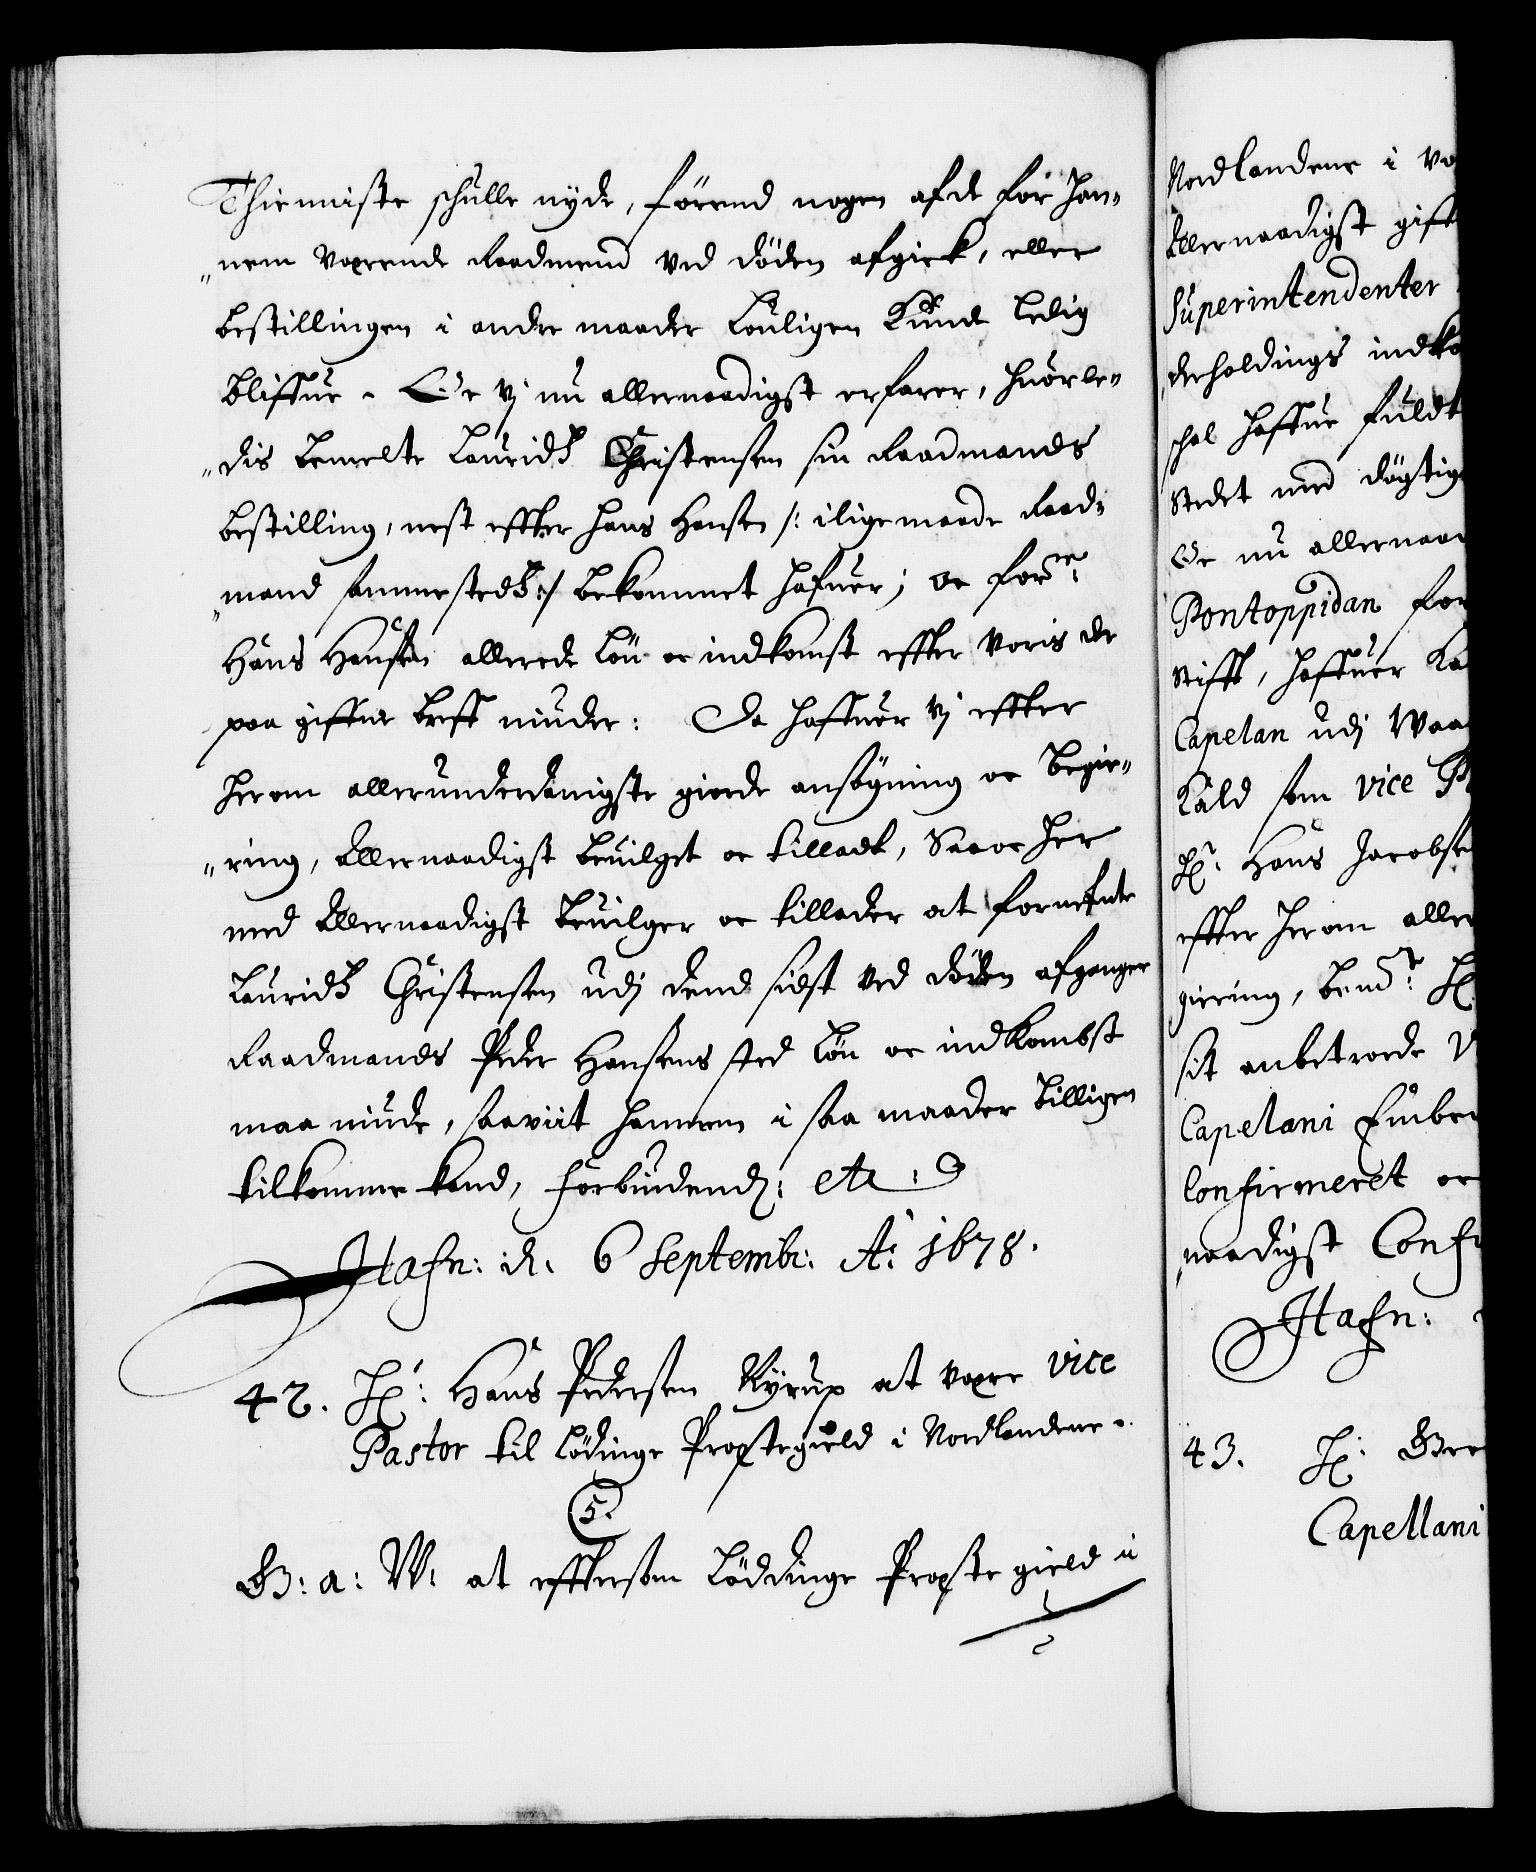 Thienniste schulle nyde, förend nogen af de for han-
nem værende Raadmend ved döden afgick, eller
bestillingen i andre maader louligen kunde ledig
bliffue. Oc vj nu allernaadigst erfarer, huorle-
dis bemelte Lauridz Christensen sin Raadmands
bestilling, nest effter Hans Hansen /: iligemaade Raad-
mand sammestedz :/ bekommet hafuer; oc forne:
Hans Hansen allerede lön oc indkomst effter voris der
paa giffne breff niuder: Da haffuer vj effter
herom allerunderdanigste giorde ansögning oc begie-
ring, allernaadigst beuilget oc tilladt, Saa oc her
med allernaadigst beuilger oc tillader at fornefnte
Lauridz Christensen udj dend sidst ved döden afganger
Raadmands Peder Hansens sted lön oc indkombst
maa niude, saaviit hannem i saa maader billigen
tilkomme kand, forbiudendis: etc:
Hafn: d. 6 Septembr: Ao: 1678.
42. Hr: Hans Pedersen Ryrup at være vice
Pastor til Lödinge Prostegield i Nordlandene.
5.
G: a: W: at effterson Löddinge Proste gield i
Nordlandene i
Allernaadigst
Superintendenter
derholdings
schal haffue fuldt
stedet med
Oc nu
Pontoppidan
Stifft, haffuer
Capelan udj
Kald som vice
Hr: Hans
effter herom
giering, bemte: Hr
sit anbetroede
Capelani
Confirmeret oc
naadigst
Hafn:
43. Hr:
Capellani